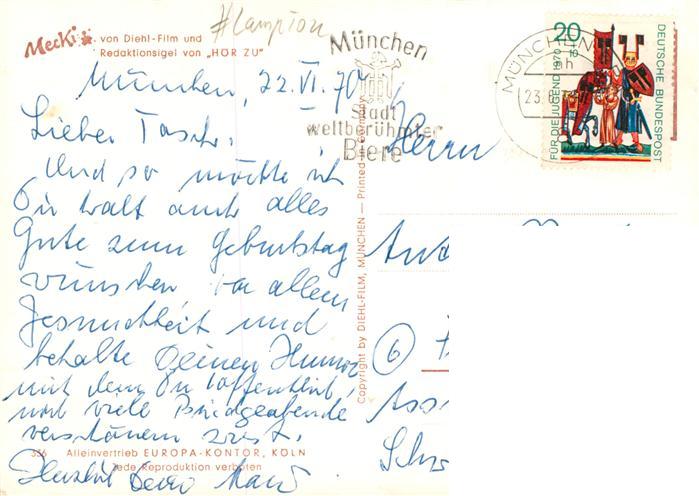 Mecki von Diehl-Film und
Redaktionsigel von „HÖR ZU"
#Lampion
München
Stadt
weltberühmter
Biere
MÜNCHEN
23.
20
+10
FÜR DIE JUGEND 1970
DEUTSCHE BUNDESPOST
München, 22. VI. 70
Lieber
Und so möchte ich
Dir halt auch alles
Gute zum Geburtstag
wünschen vor allem
Gesundheit und
behalte Deinen Humor
mit dem Du hoffentlich
noch viele Bridgeabende
verschönern
Herzlichst Deine
Herrn
(6)
Copyright by DIEHL-FILM, MÜNCHEN — Printed in Germany
356 Alleinvertrieb EUROPA-KONTOR, KÖLN
Jede Reproduktion verboten